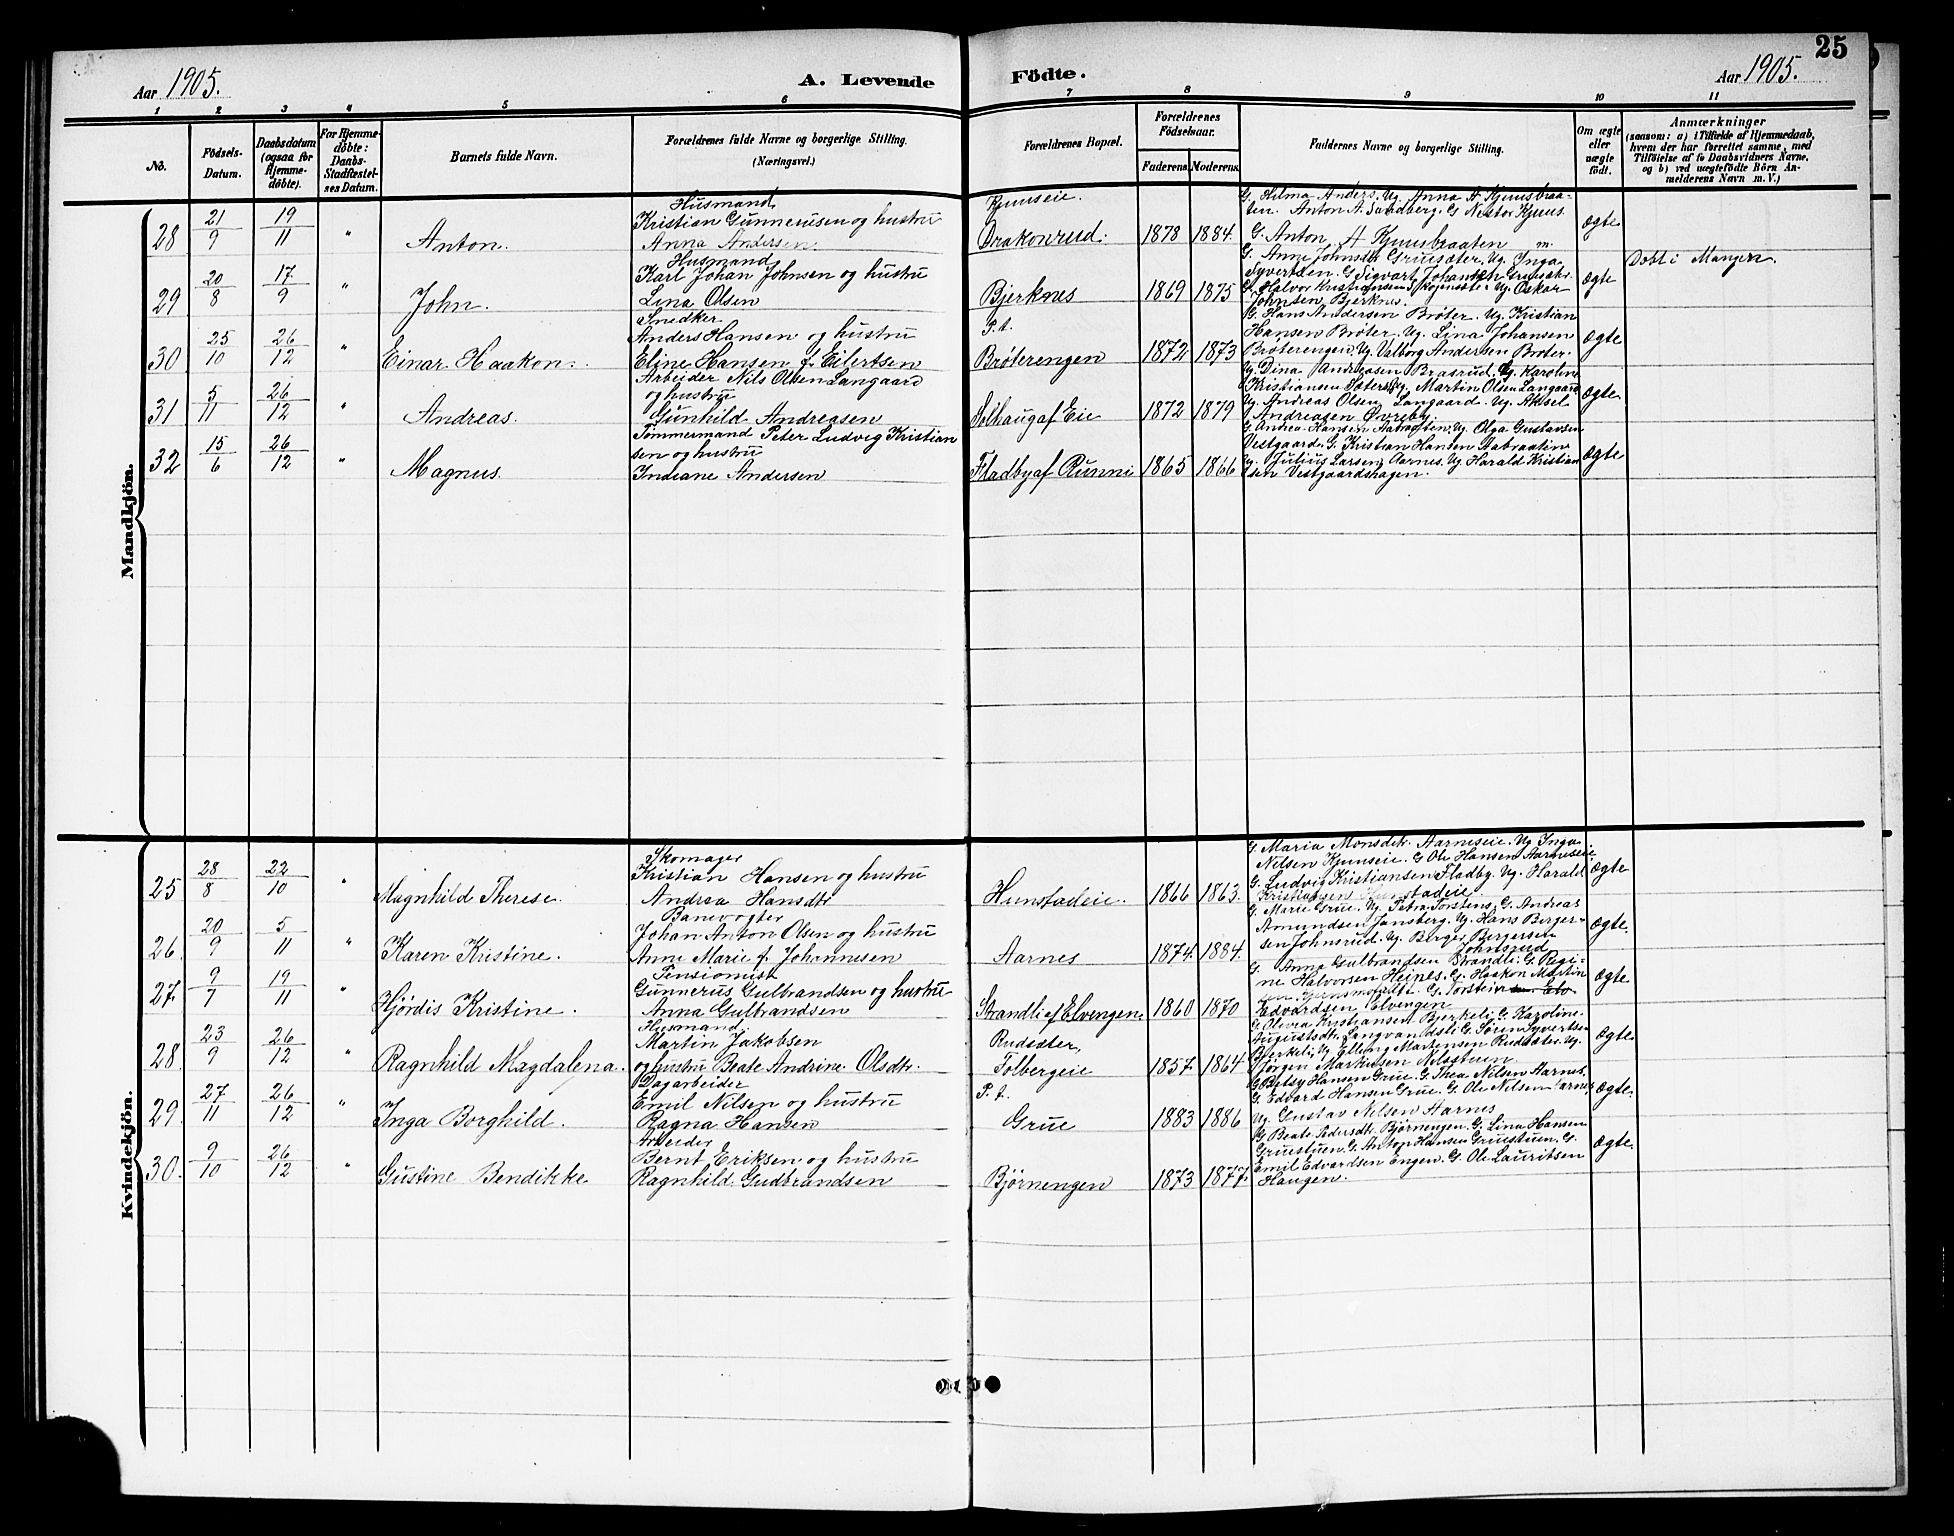 Aar 1905.
A. Levende
Födte.
Aar 1905.
25
1 2 3 4 5 6 7 8 9 10 11
No.
Födsels-
Datum.
Daabsdatum
(ogsaa for
Hjemme-
døbte).
For Hjemme-
døbte:
Daabs-
Stadfæstel-
ses Datum.
Barnets fulde Navn.
Forældrenes fulde Navne og borgerlige Stilling.
(Næringsvei.)
Forældrenes Bopæl.
Forældrenes
Födselsaar.
Faderens.
Moderens.
Faddernes Navne og borgerlige Stilling.
Om ægte
eller
uægte
født.
Anmærkninger
(saasom: a) i Tilfælde af Hjemmedaab,
hvem der har forrettet samme, med
Tilföielse af to Daabsvidners Navne,
og b) ved uægtefödte Börn An-
melderens Navn m. V.)
Mandkjön.
28
21/9
19/11
"
Anton.
Husmand
Kristian Gunneriusen og hustru
Anna Andersen
Kjunseie.
Drakonrud.
1878
1884.
G. Hilma Anders. Ug. Anna A Kjuusbraa-
ten. Anton A. Sandberg. G Nestor Kjuus
G. Anton A Kjuusbraaten m.
ægte
29
20/8
17/9
"
John.
Husmand
Karl Johan Johnsen og hustru
Lina Olsen
Bjerknes
1869
1875
G. Anne Johnsdtr Gruesæter. Ug. Inga
Syvertsen. G Sigvart Johansen Gruesætr.
G. Halvor Kristiansen Ug. Oskar
Johnsen Bjerknes.
ægte
Döbt i Mangen.
30
25/10
26/12
"
Einar Haakon.
Snedker
Anders Hansen og hustru
Eline Hansen f. Eilertsen
P. t.
Bröterengen
1872
1873
G. Hans Andersen Bröter. Ug. Kristian
Hansen Bröter. Ug. Lina Johansen
Bröterengen. Ug. Valborg Andersen Bröter.
ægte
31
5/11
26/12
Andreas.
Arbeider Nils Olsen Langaard
og hustru
Gunhild Andreasen
Solhaug af Eie
1872
1879
Ug. Dina Andreasen Brasrud. Ug. Karoline
Kristiansen Sæter. Ug. Martin Olsen Langaard
Ug. Andreas Olsen Langaard. Ug. Aksel
Andreasen Øvreby.
ægte
32
15/6
26/12
"
Magnus.
Tömmermand Peter Ludvig Kristian
sen og hustru
Indiane Andersen
Fladby af Runni
1865
1866
G. Andrea Hansen Aabraaten. Ug. Olga Gustavsen
Vestgaard. G. Kristian Hansen Aabraaten
Ug. Julius Larsen Aarnes. Ug. Harald Kristian
sen Vestgaardshagen.
ægte
Kvindekjön.
25
28/8
22/10
"
Magnhild Therese.
Skomager
Kristian Hansen og hustru
Andrea Hansdtr
Hunstadeie.
1866
1863.
G. Maria Monsdtr. Aarneseie. Ug Inga
Nilsen Kjunseie. G Ole Hansen Aarneseie
G. Ludvig Kristiansen Fladby. Ug. Harald
Kristiansen Hunstadeie.
ægte
26
20/9
5/11
"
Karen Kristine.
Banevogter
Johan Anton Olsen og hustru
Anne Marie f. Johannesen
Aarnes
1874.
1884.
G. Marie Grue. Ug. Petra Torstens. G. Andreas
Amundsen Jansberg. Ug. Hans Berger-
sen Johnsrud. Ug. Berger Bergersen
Johnsrud
ægte.
27.
9/7
19/11
"
Hjördis Kristine.
Pensionist
Gunnerus Gulbrandsen og hustru
Anna Gulbrandsen
Strandli af Elvengen.
1860
1870
G. Anna Gulbrandsen Strandli. G. Regi-
ne Halvorsen Heines. G. Haakon Martin
sen G. Torstein
Edvardsen Elvengen
ægte
28
23/9
26/12
"
Ragnhild Magdalena.
Husmand
Martin Jakobsen
og hustru Beate Andrine Olsdtr.
Rudsæter,
Folbergeie
1857.
1864
G. Olivia Kristiansen Bjerkeli. G. Karoline
Augustsdtr. Langvandsli. G. Sören Syvertsen
Bjerkeli. Ug. Elling Martinsen Rudsæter. Ug.
Jörgen Markusen Nilsstuen
ægte.
29.
27/11
26/12
"
Inga Borghild.
Dagarbeider
Emil Nilsen og hustru
Ragna Hansen
P. t.
Grue
1883
1886
G. Betsy Hansen Grue. G. Thea Nilsen Aarnes.
G. Edvard Hansen Grue. G. Ole Nilsen Aarnes
Ug. Gustav Nilsen Aarnes
ægte.
30.
9/10
26/12
"
Gustine Bendikke
Arbeider
Bernt Eriksen og hustru
Ragnhild Gudbrandsen
Björnengen
1873
1877.
G. Beate Pedersdtr. Björnengen. G. Lina Hansen
Gruestuen. G. Anton Hansen Gruestuen. G.
Emil Edvardsen Engen. G. Ole Lauritsen
Haugen.
ægte.